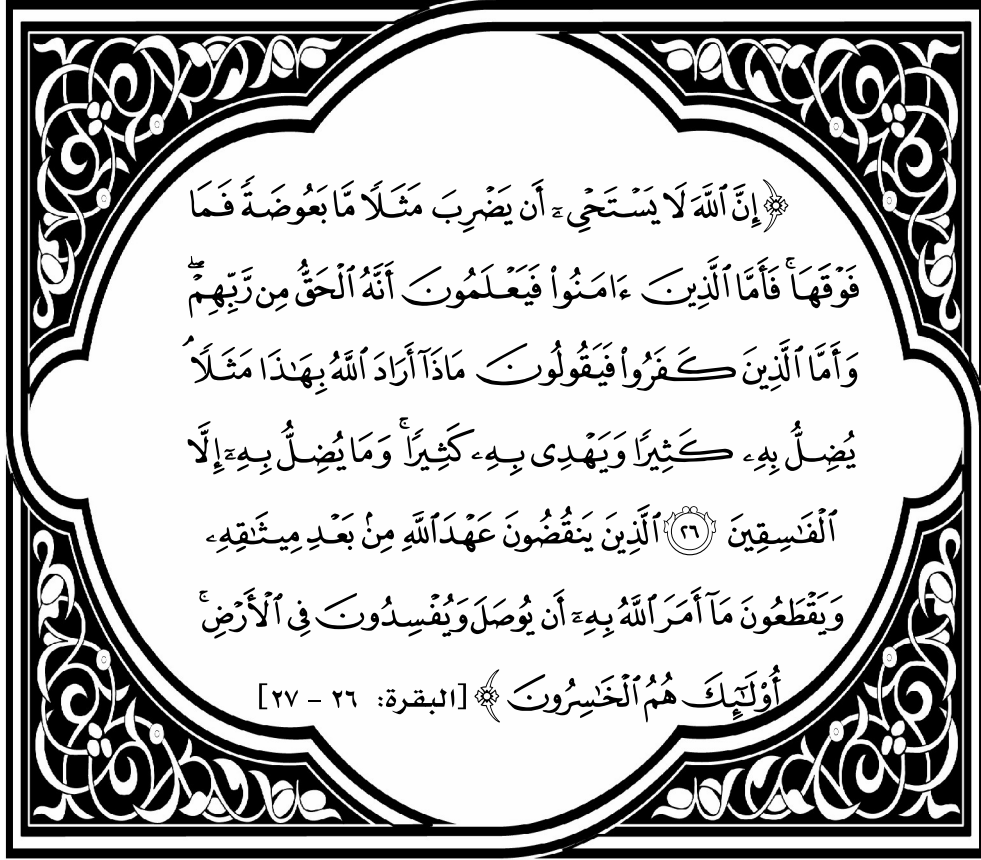 ﴿إِنَّ ٱللَّهَ لَا يَسْتَحْيِۦٓ أَن يَضْرِبَ مَثَلًا مَّا بَعُوضَةً فَمَا
فَوْقَهَاۚ فَأَمَّا ٱلَّذِينَ ءَامَنُوا۟ فَيَعْلَمُونَ أَنَّهُ ٱلْحَقُّ مِن رَّبِّهِمْۖ
وَأَمَّا ٱلَّذِينَ كَفَرُوا۟ فَيَقُولُونَ مَاذَآ أَرَادَ ٱللَّهُ بِهَـٰذَا مَثَلًاۘ
يُضِلُّ بِهِۦ كَثِيرًا وَيَهْدِى بِهِۦ كَثِيرًاۚ وَمَا يُضِلُّ بِهِۦٓ إِلَّا
ٱلْفَـٰسِقِينَ ٢٦ ٱلَّذِينَ يَنقُضُونَ عَهْدَ ٱللَّهِ مِنۢ بَعْدِ مِيثَـٰقِهِۦ
وَيَقْطَعُونَ مَآ أَمَرَ ٱللَّهُ بِهِۦٓ أَن يُوصَلَ وَيُفْسِدُونَ فِى ٱلْأَرْضِۚ
أُو۟لَـٰٓئِكَ هُمُ ٱلْخَـٰسِرُونَ﴾ [البقرة: ٢٦ - ٢٧]